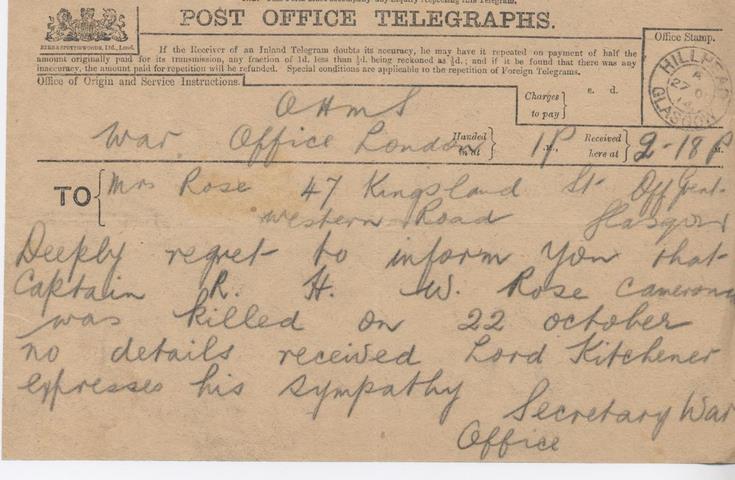 POST OFFICE TELEGRAPHS.
EYRE & SPOTTISWOODE, Ltd., Lond.
If the Receiver of an Inland Telegram doubts its accuracy, he may have it repeated on payment of half the
amount originally paid for its transmission, any fraction of 1d. less than ½d. being reckoned as ½d.; and if it be found that there was any
inaccuracy, the amount paid for repetition will be refunded. Special conditions are applicable to the repetition of Foreign Telegrams.
Office Stamp.
HILLHEAD
GLASGOW
Office of Origin and Service Instructions.
OHMS
Charges
to pay
s. d.
War Office London
Handed
in at
1P M.,
Received
here at
2-18 P M.
TO
Mrs Rose 47 Kingsland St Off Great
western Road Glasgow
Deeply regret to inform you that
Captain R. H. W. Rose Camerons
was killed on 22 october
no details received Lord Kitchener
expresses his sympathy
Secretary War
Office